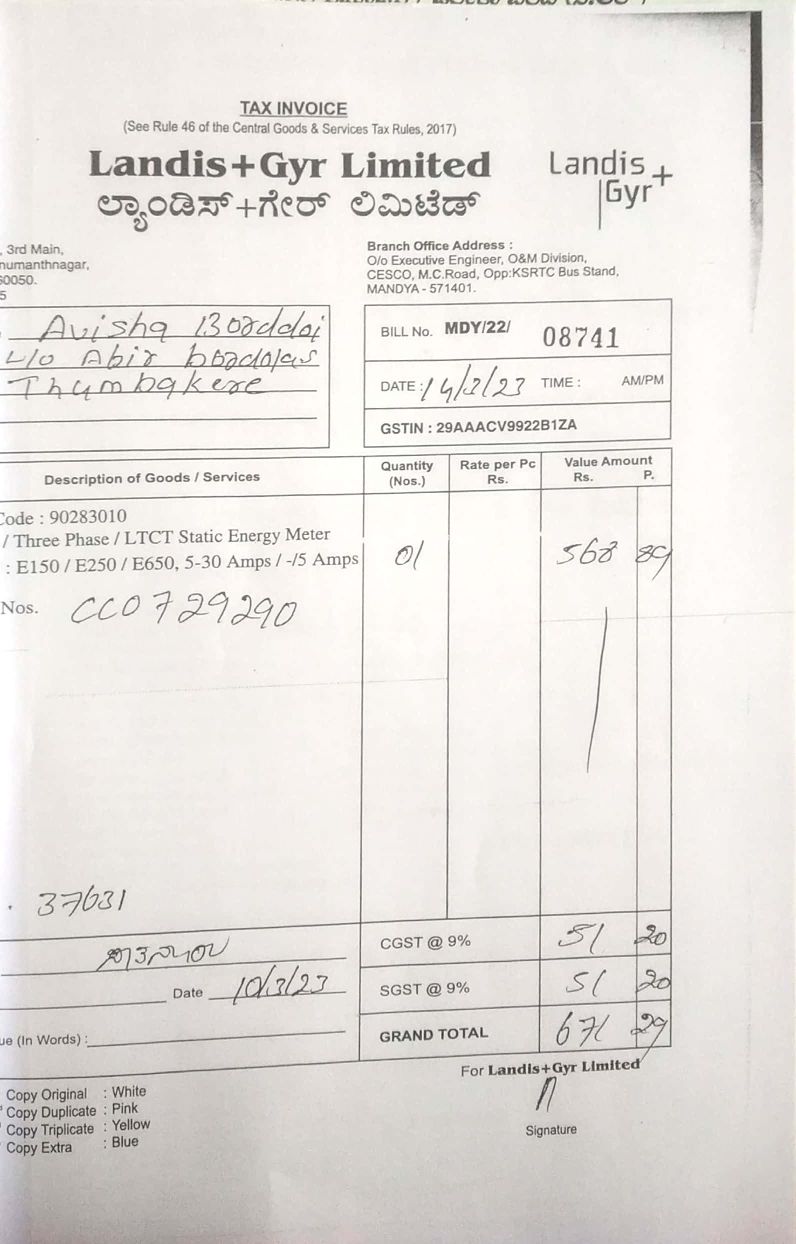 TAX INVOICE
(See Rule 46 of the Central Goods & Services Tax Rules, 2017)
Landis+Gyr Limited
ಲ್ಯಾಂಡಿಸ್+ಗೇರ್ ಲಿಮಿಟೆಡ್
Landis+
Gyr+
, 3rd Main,
numanthnagar,
60050.
5
Branch Office Address :
O/o Executive Engineer, O&M Division,
CESCO, M.C.Road, Opp:KSRTC Bus Stand,
MANDYA - 571401.
Avisha
Abir
Thumbakere
BILL No. MDY/22/ 08741
DATE : 14/3/23 TIME : AM/PM
GSTIN : 29AAACV9922B1ZA
Description of Goods / Services
Quantity (Nos.)
Rate per Pc Rs.
Value Amount Rs. P.
Code : 90283010
/ Three Phase / LTCT Static Energy Meter
: E150 / E250 / E650, 5-30 Amps / -/5 Amps 01 568 89
Nos. CC0729290
37631
CGST @ 9% 51 20
Date 10/3/23
SGST @ 9% 51 20
ue (In Words) :
GRAND TOTAL 671 29
For Landis+Gyr Limited
Signature
Copy Original : White
Copy Duplicate : Pink
Copy Triplicate : Yellow
Copy Extra : Blue